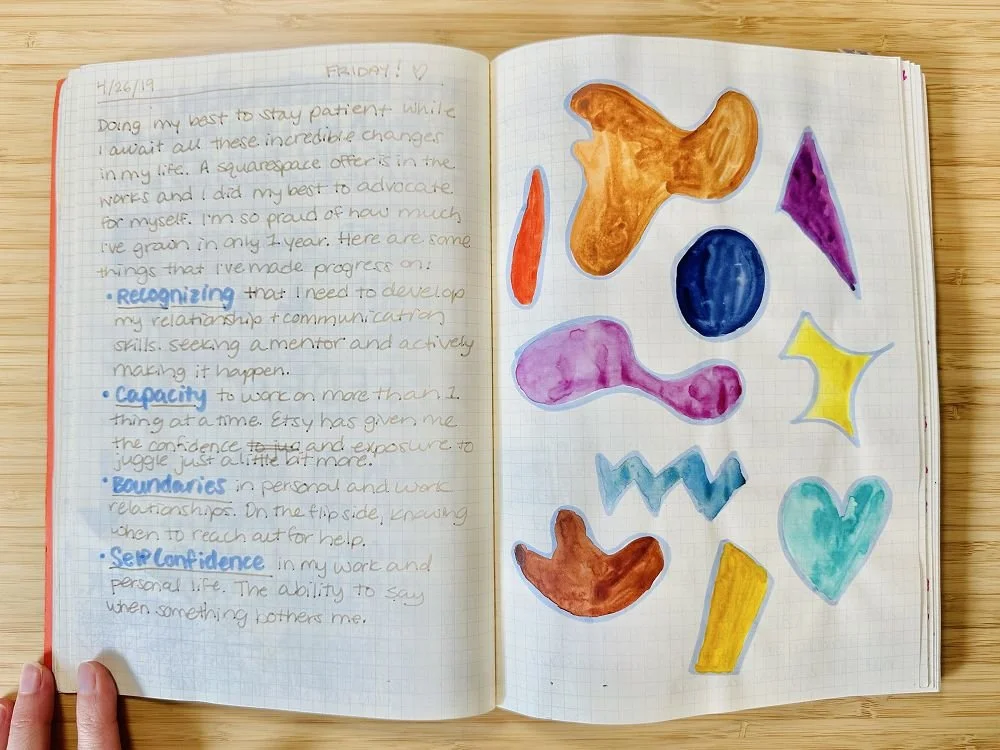 4/26/19
FRIDAY! ♡
Doing my best to stay patient while
I await all these incredible changes
in my life. A squarespace offer is in the
works and I did my best to advocate
for myself. I'm so proud of how much
I've grown in only 1 year. Here are some
things that I've made progress on:
• Recognizing that I need to develop
my relationship + communication
skills. Seeking a mentor and actively
making it happen.
• Capacity to work on more than 1
thing at a time. Etsy has given me
the confidence to jug and exposure to
juggle just a little bit more.
• Boundaries in personal and work
relationships. On the flip side, knowing
when to reach out for help.
• Self Confidence in my work and
personal life. The ability to say
when something bothers me.